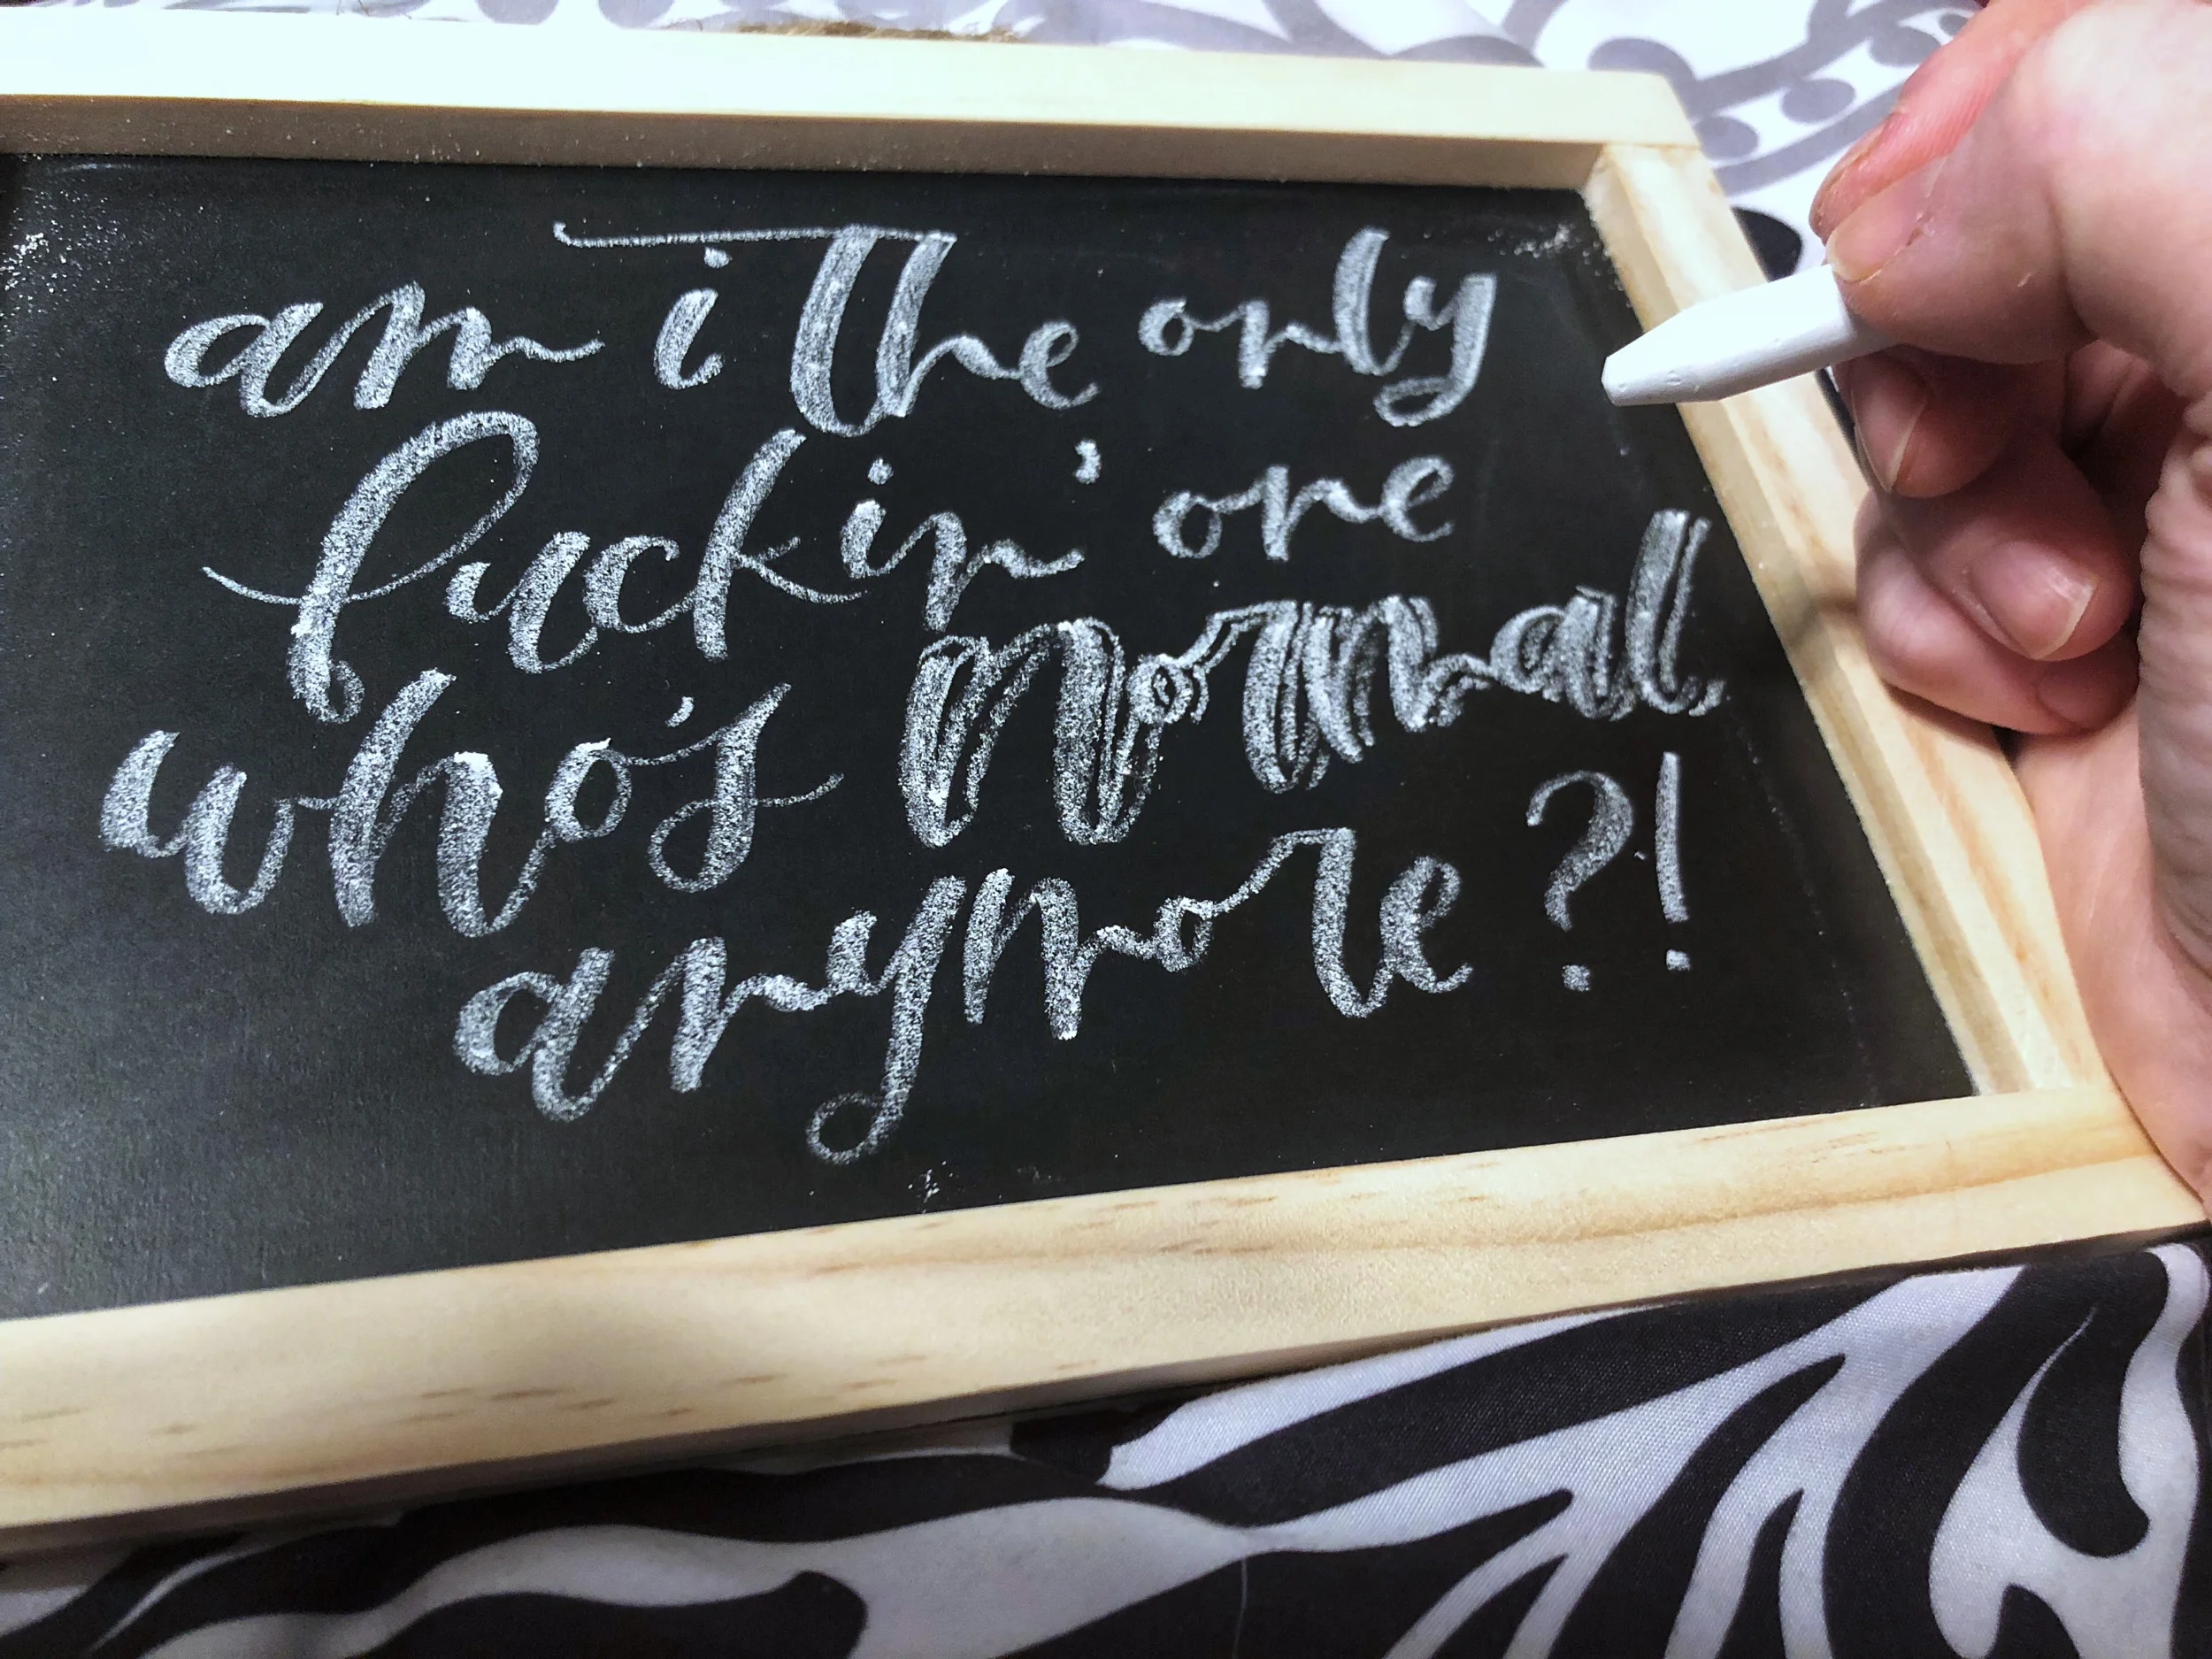 am i the only
fuckin' one
who's normal
anymore?!